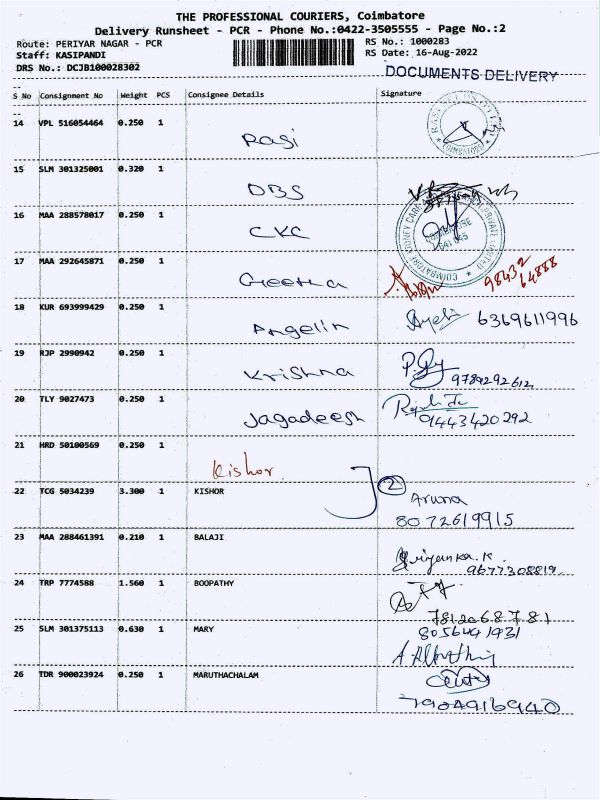 THE PROFESSIONAL COURIERS, Coimbatore
Delivery Runsheet - PCR - Phone No.:0422-3505555 - Page No.:2
Route: PERIYAR NAGAR - PCR
RS No.: 1000283
Staff: KASIPANDI
RS Date: 16-Aug-2022
DRS No.: DCJB100028302
DOCUMENTS DELIVERY
S No Consignment No Weight PCS Consignee Details Signature
14 VPL 516054464 0.250 1
Rasi
15 SLM 301325001 0.320 1
DBS
16 MAA 288578017 0.250 1
CKC
17 MAA 292645871 0.250 1
Geetha 98432
64888
18 KUR 693999429 0.250 1
Angelin 6369611996
19 RJP 2990942 0.250 1
Krishna 9789292612
20 TLY 9027473 0.250 1
Jagadeesh 9443420292
21 HRD 50100569 0.250 1
Kishor
22 TCG 5034239 3.300 1 KISHOR 2
Aruna
8072619915
23 MAA 288461391 0.210 1 BALAJI
Priyanka.K
9677308819
24 TRP 7774588 1.560 1 BOOPATHY
7812068781
25 SLM 301375113 0.630 1 MARY 8056491931
26 TDR 900023924 0.250 1 MARUTHACHALAM
7904916940